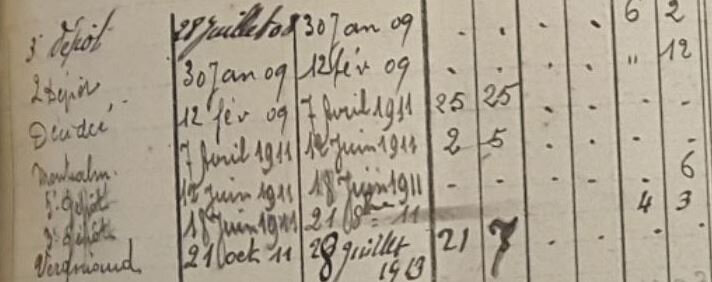 3e Dépôt 28 Juillet 08 30 Jan 09 . . . . 6 2
2 Dépôt 30 Jan 09 12 fév 09 . . . . " 12
Décidée 12 fév 09 7 Avril 1911 25 25 . . - -
Montcalm 7 Avril 1911 12 Juin 1911 2 5 . . - -
5e Dépôt 12 Juin 1911 18 Juin 1911 - - . . - 6
3e Dépôt 18 Juin 1911 21 8bre 11 4 3
Vergniaud 21 oct 11 28 Juillet 1913 21 7 . - . -